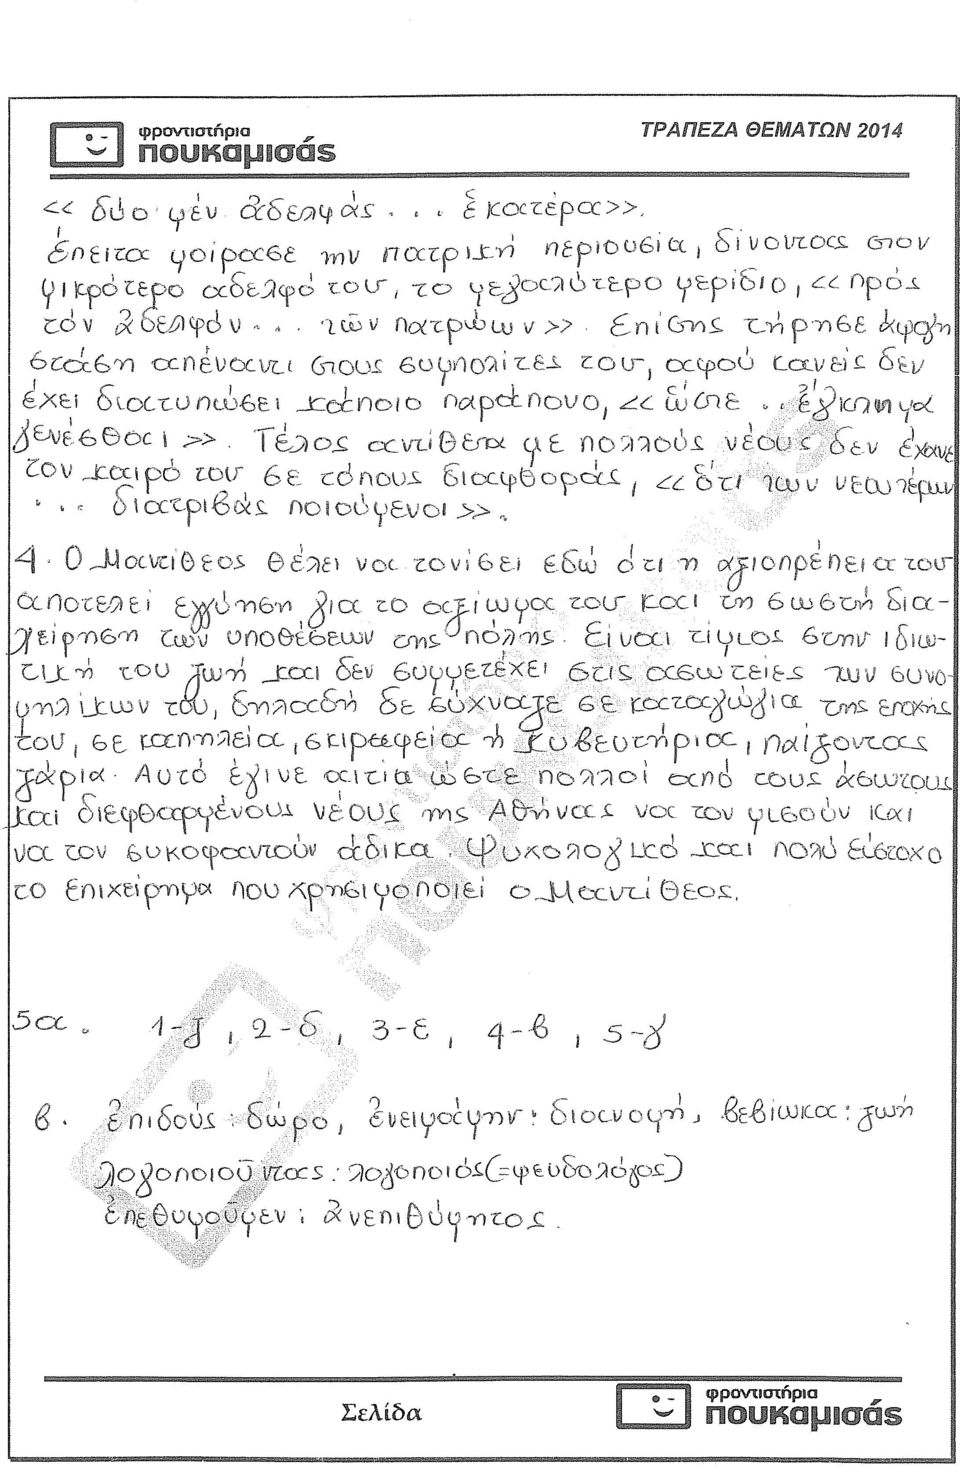 φροντιστήρια
πουκαμισάς
ΤΡΑΠΕΖΑ ΘΕΜΑΤΩΝ 2014
<< δύο μέν ἀδελφάς . . . ἑκατέρα>>.
Έπειτα μοίρασε την πατρική περιουσία, δίνοντας στον
μικρότερο αδελφό του, το μεγαλύτερο μερίδιο, << πρός
τόν ἀδελφόν . . . τῶν πατρώων>>. Επίσης τήρησε άψογη
στάση απέναντι στους συμπολίτες του, αφού κανείς δεν
έχει διατυπώσει κάποιο παράπονο, << ὥστε . . ἔγκλημα
γενέσθαι >>. Τέλος αντίθετα με πολλούς νέους δεν έχανε
τον καιρό του σε τόπους διαφθοράς, << ὅτι τῶν νεωτέρων
. . . διατριβάς ποιούμενοι >>.
4. Ο Μαντίθεος θέλει να τονίσει εδώ ότι η αξιοπρέπεια του
αποτελεί εγγύηση για το αξίωμα του και τη σωστή δια-
χείρηση των υποθέσεων της πόλης. Είναι τίμιος στην ιδιω-
τική του ζωή και δεν συμμετέχει στις ασωτείες των συνο-
μηλίκων του, δηλαδή δε σύχναζε σε καταγώγια της εποχής
του, σε καπηλεία, σκιραφεία ή κυβευτήρια, παίζοντας
ζάρια. Αυτό έγινε αιτία ώστε πολλοί από τους άσωτους
και διεφθαρμένους νέους της Αθήνας να τον μισούν και
να τον συκοφαντούν άδικα. Ψυχολογικό και πολύ εύστοχο
το επιχείρημα που χρησιμοποιεί ο Μαντίθεος.
5α. 1-ζ, 2-δ, 3-ε, 4-β, 5-γ
β. ἐπιδούς : δώρο, ἐνειμάμην : διανομή, βεβίωκα : ζωή
λογοποιοῦντας : λογοποιός(=ψευδολόγος)
ἐπεθυμοῦμεν : ἀνεπιθύμητος.
Σελίδα
φροντιστήρια
πουκαμισάς